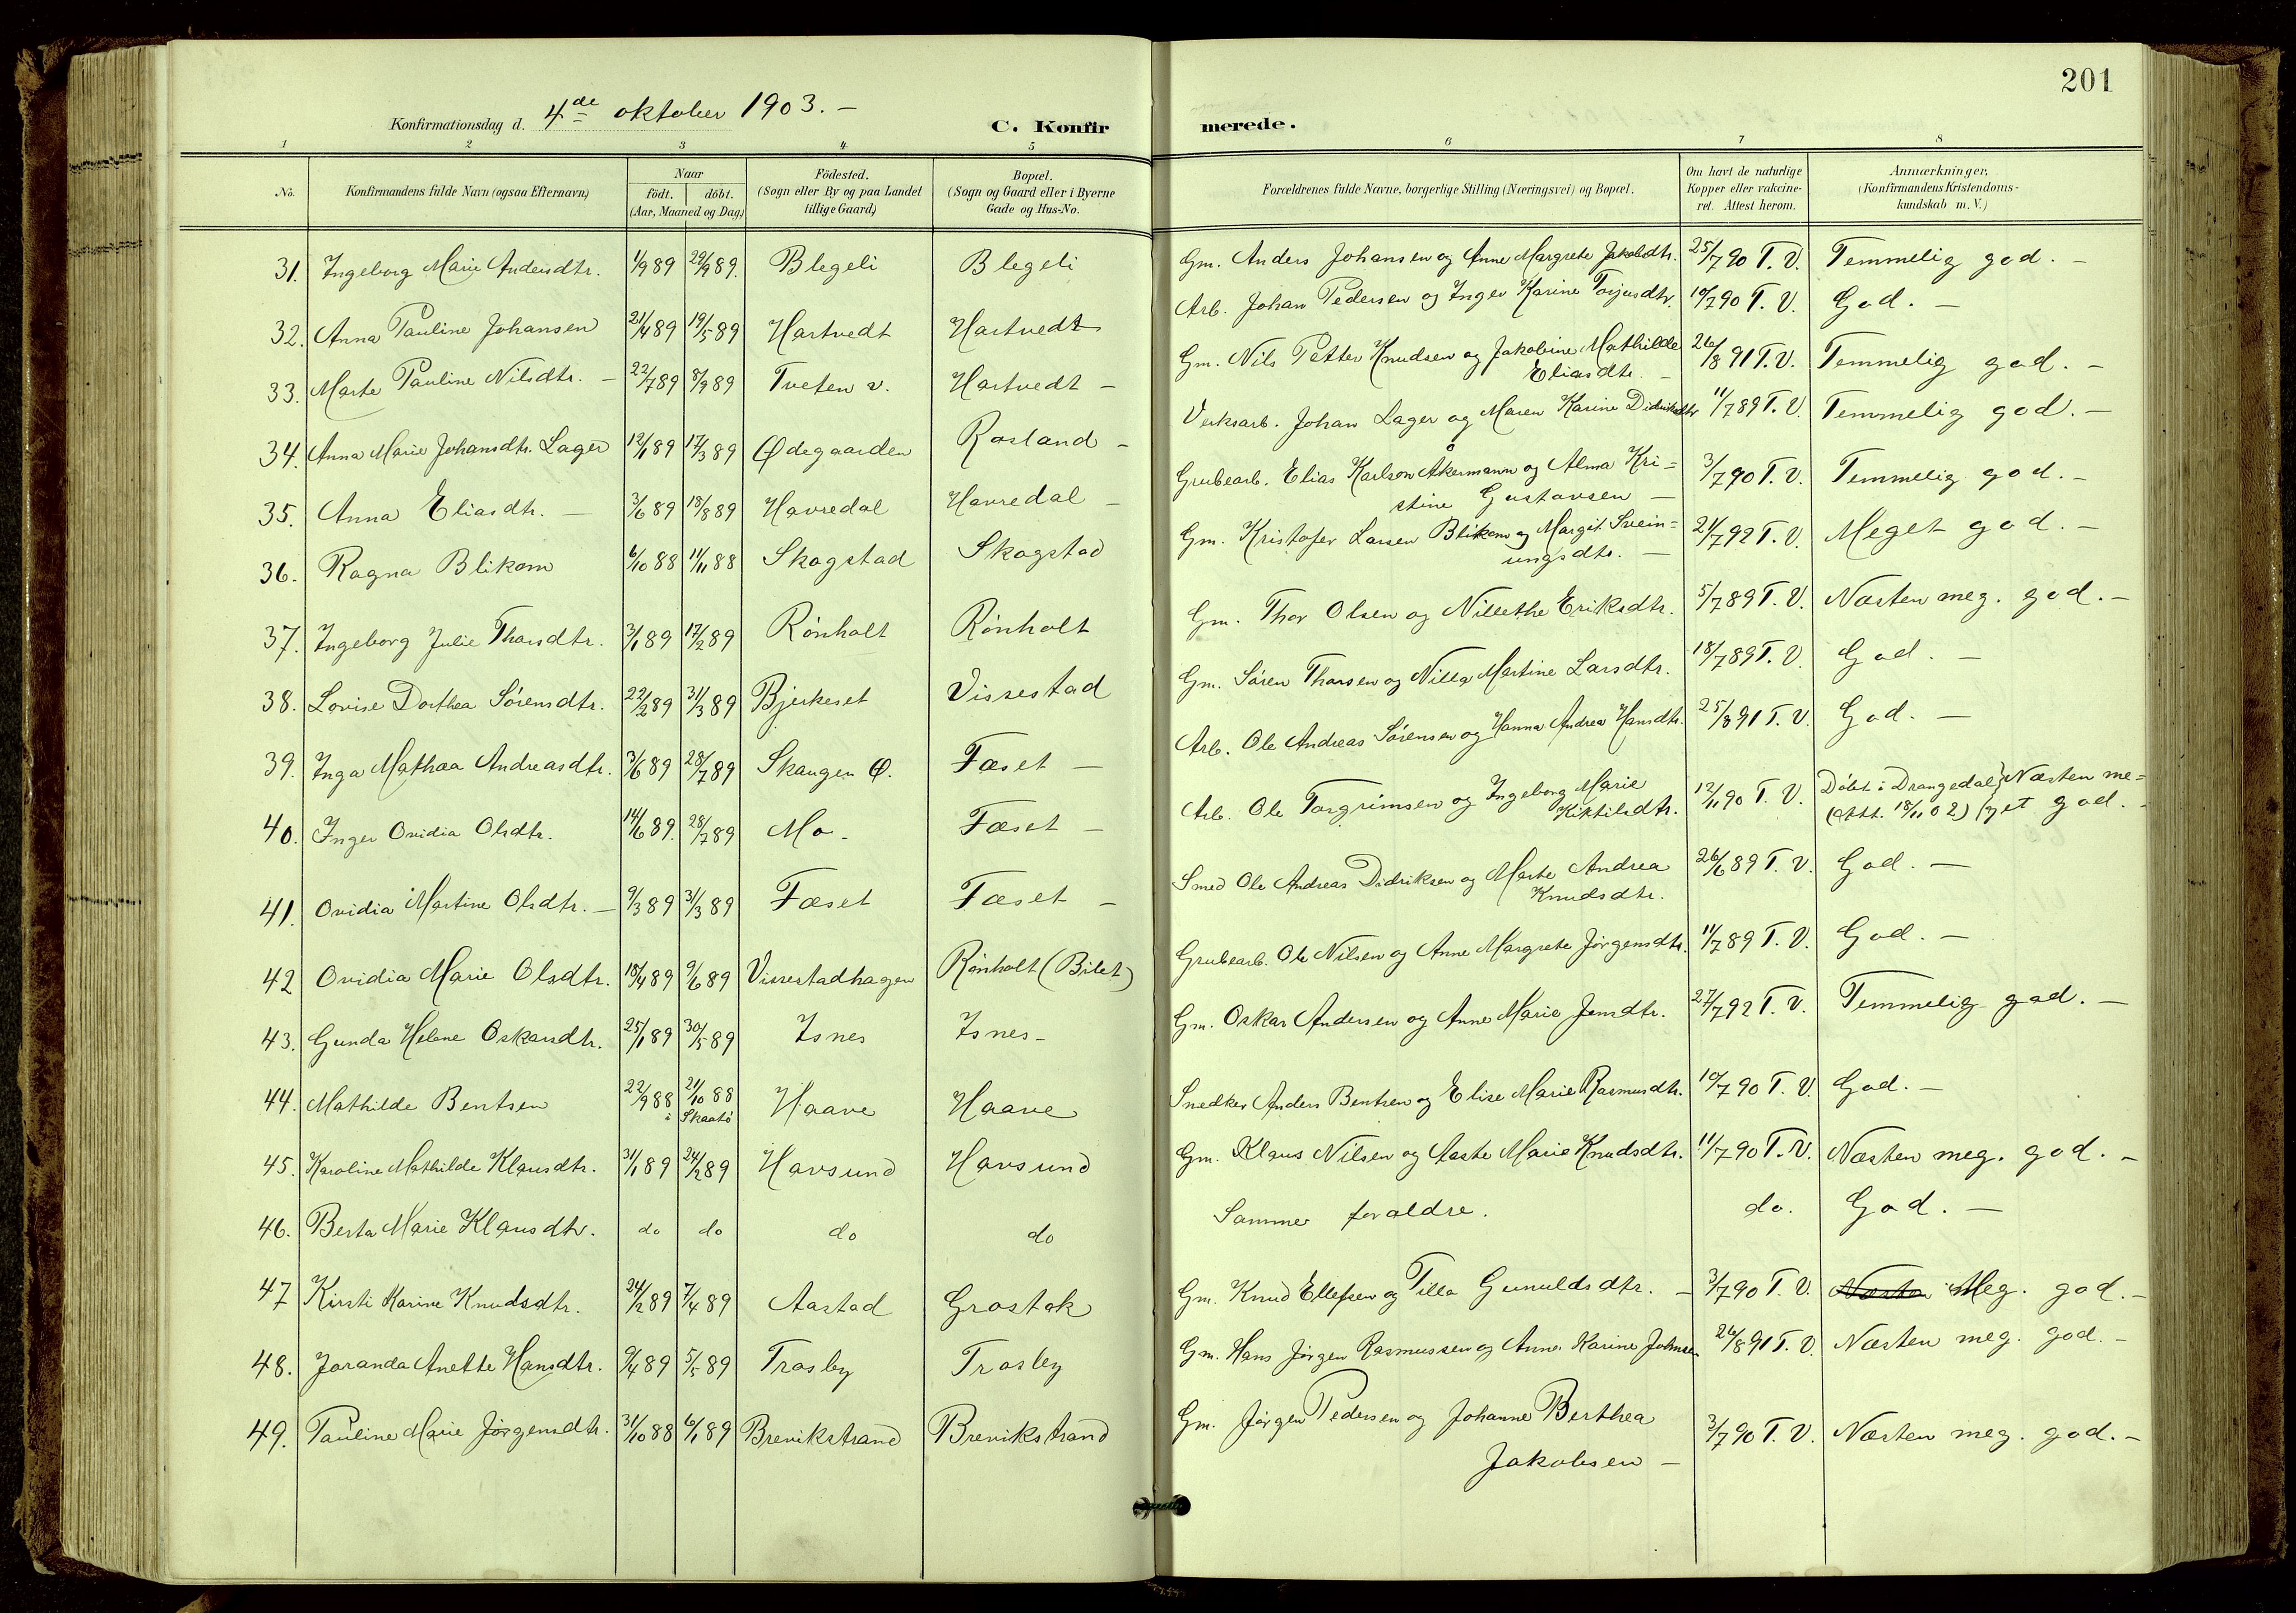 201
Konfirmationsdag d. 4de oktober 1903. —
C. Konfirmerede.
1 2 3 4 5 6 7 8
No. Konfirmandens fulde Navn (ogsaa Efternavn) Naar födt. döbt. (Aar, Maaned og Dag) Födested. (Sogn eller By og paa Landet tillige Gaard) Bopæl. (Sogn og Gaard eller i Byerne Gade og Hus-No. Forældrenes fulde Navne, borgerlige Stilling (Næringsvei) og Bopæl. Om havt de naturlige Kopper eller vakcineret. Attest herom. Anmærkninger, (Konfirmandens Kristendomskundskab m. V.)
31. Ingeborg Marie Andersdtr. 1/9 89 29/9 89. Blegeli Blegeli Gm. Anders Johansen og Anne Margrete Jakobsdtr. 25/7 90 T. V. Temmelig god. —
32. Anna Pauline Johansen 21/4 89 19/5 89 Hartvedt Hartvedt Arb. Johan Pedersen og Inger Karine Torjusdtr. 10/7 90 T. V. God. —
33. Marte Pauline Nilsdtr. — 22/7 89 8/9 89 Tveten v. Hartvedt — Gm. Nils Petter Knudsen og Jakobine Mathilde
Eliasdtr. — 26/8 91 T. V. Temmelig god. —
34. Anna Marie Johansdtr. Lager 12/1 89 17/3 89 Ødegaarden Rosland — Verksarb. Johan Lager og Maren Karine Didriksdtr 11/7 89 T. V. Temmelig god. —
35. Anna Eliasdtr. — 3/6 89 18/8 89 Havredal Havredal — Grubearb. Elias Karlson Åkermann og Alma Kri=
stine Gustavsen — 3/7 90 T. V. Temmelig god. —
36. Ragna Blikom 6/10 88 11/11 88 Skogstad Skogstad Gm. Kristofer Larsen Blikom og Margit Svein=
ungsdtr. — 21/7 92 T. V. Meget god. —
37. Ingeborg Julie Thorsdtr. 3/1 89 17/2 89 Rönholt Rönholt Gm. Thor Olsen og Nillethe Eriksdtr. 5/7 89 T. V. Næsten meg. god. —
38. Lovise Dorthea Sörensdtr. 22/2 89 31/3 89 Bjerkeset Vissestad Gm. Sören Thorsen og Nilla Martine Larsdtr. 18/7 89 T. V. God. —
39. Inga Mathea Andreasdtr. 3/6 89 28/7 89 Skaugen Ø. Fæset — Arb. Ole Andreas Sörensen og Hanna Andrea Hansdtr. 25/8 91 T. V. God. —
40. Inger Ovidia Olsdtr. 14/6 89. 28/7 89 Mo — Fæset — Arb. Ole Torgrimsen og Ingeborg Marie
Kittilsdtr. 12/11 90 T. V. Döbt i Drangedal (Att. 18/11 02) Næsten me=
get god. —
41. Ovidia Martine Olsdtr. — 9/3 89 31/3 89 Fæset Fæset — Smed Ole Andreas Didriksen og Marte Andrea
Knudsdtr. 26/6 89 T. V. God. —
42 Ovidia Marie Olsdtr. 18/4 89 9/6 89 Vissestadhagen Rönholt (Bilet) Grubearb. Ole Nilsen og Anne Margrete Jörgensdtr. 11/7 89 T. V. God. —
43. Gunda Helene Oskarsdtr. 25/1 89 30/5 89 Isnes Isnes — Gm. Oskar Andersen og Anne Marie Jensdtr. 27/7 92 T. V. Temmelig god. —
44. Mathilde Bentsen 22/9 88 21/10 88
i Skaatö Haave Haave Snedker Anders Bentsen og Elise Marie Rasmusdtr. 10/7 90 T. V. God. —
45. Karoline Mathilde Klausdtr. 31/1 89 24/2 89 Havsund Havsund Gm. Klaus Nilsen og Aaste Marie Knudsdtr. 11/7 90 T. V. Næsten meg. god. —
46. Berta Marie Klausdtr. do do do do Samme foraldre. do. God. —
47 Kirsti Karine Knudsdtr. 24/2 89 7/4 89 Aastad Grostok Gm. Knud Ellefsen og Tilla Gunuldsdtr. — 3/7 90 T. V. Næsten Meg. god. —
48. Joranda Anette Hansdtr. 9/4 89 5/5 89 Trosby Trosby Gm. Hans Jörgen Rasmussen og Anne Karine Johnsen 26/8 91 T. V. Næsten meg. god. —
49. Pauline Marie Jörgensdtr. 31/10 88 6/1 89 Brevikstrand Brevikstrand Gm. Jörgen Pedersen og Johanne Berthea
Jakobsen — 3/7 90 T. V. Næsten meg. god. —